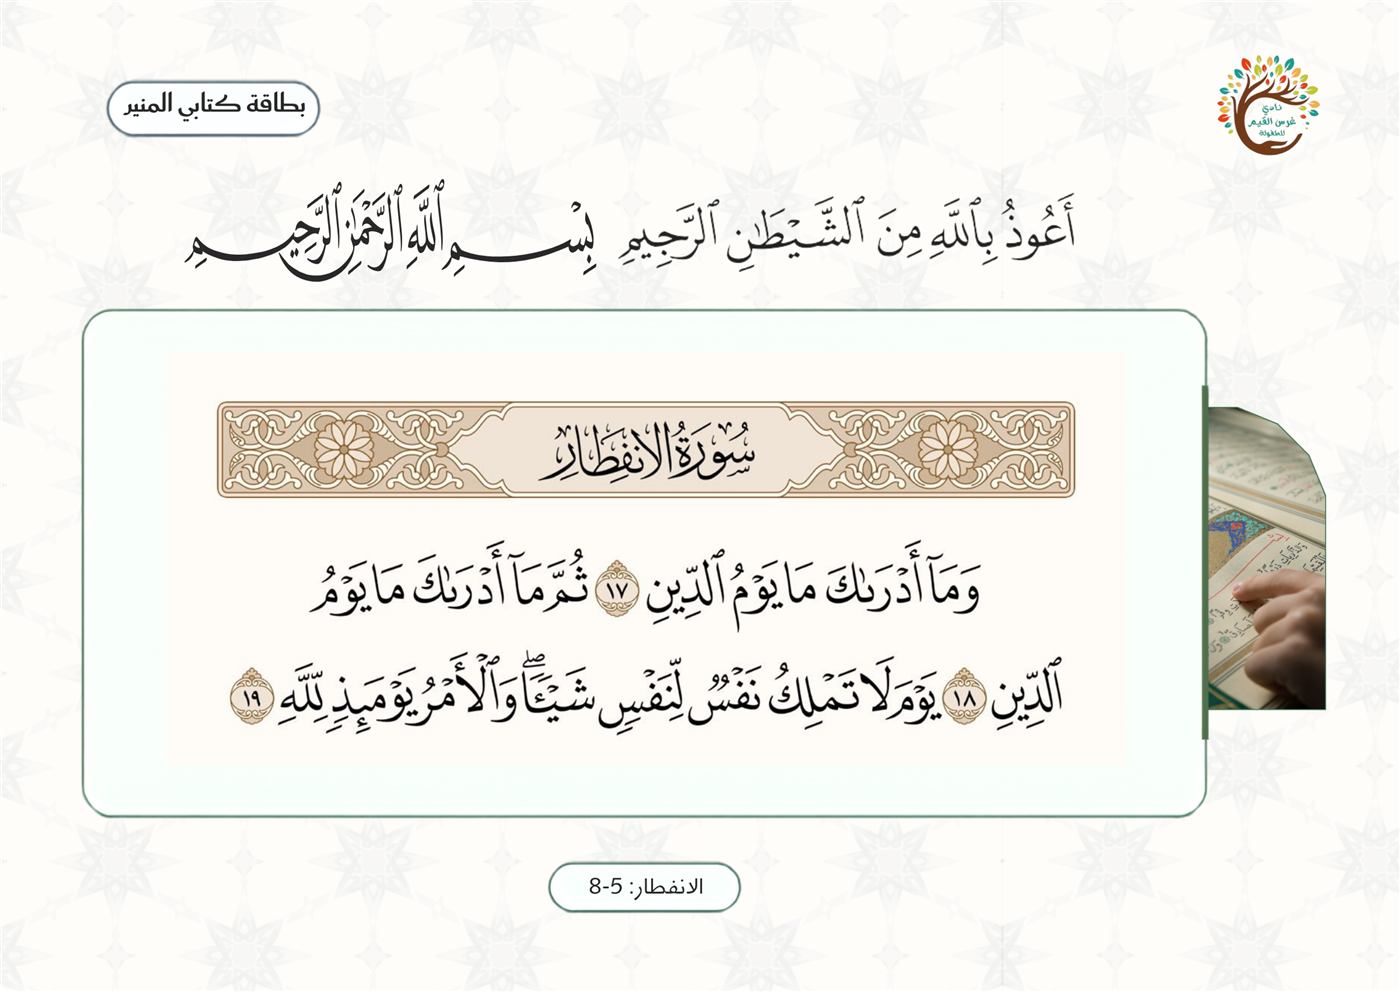 بطاقة كتابي المنير
نادي
غرس القيم
للطفولة
أَعُوذُ بِٱللَّهِ مِنَ ٱلشَّيْطَٰنِ ٱلرَّجِيمِ بِسْمِ ٱللَّهِ ٱلرَّحْمَٰنِ ٱلرَّحِيمِ
سُورَةُ الانفِطَارِ
وَمَآ أَدْرَىٰكَ مَا يَوْمُ ٱلدِّينِ ١٧ ثُمَّ مَآ أَدْرَىٰكَ مَا يَوْمُ
ٱلدِّينِ ١٨ يَوْمَ لَا تَمْلِكُ نَفْسٌ لِّنَفْسٍ شَيْـًٔا ۖ وَٱلْأَمْرُ يَوْمَئِذٍ لِّلَّهِ ١٩
الانفطار: 5-8